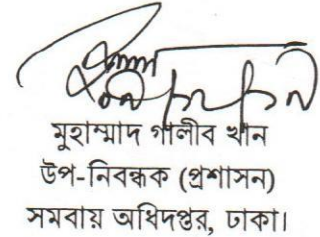 মুহাম্মাদ গালীব খান
উপ-নিবন্ধক (প্রশাসন)
সমবায় অধিদপ্তর, ঢাকা।